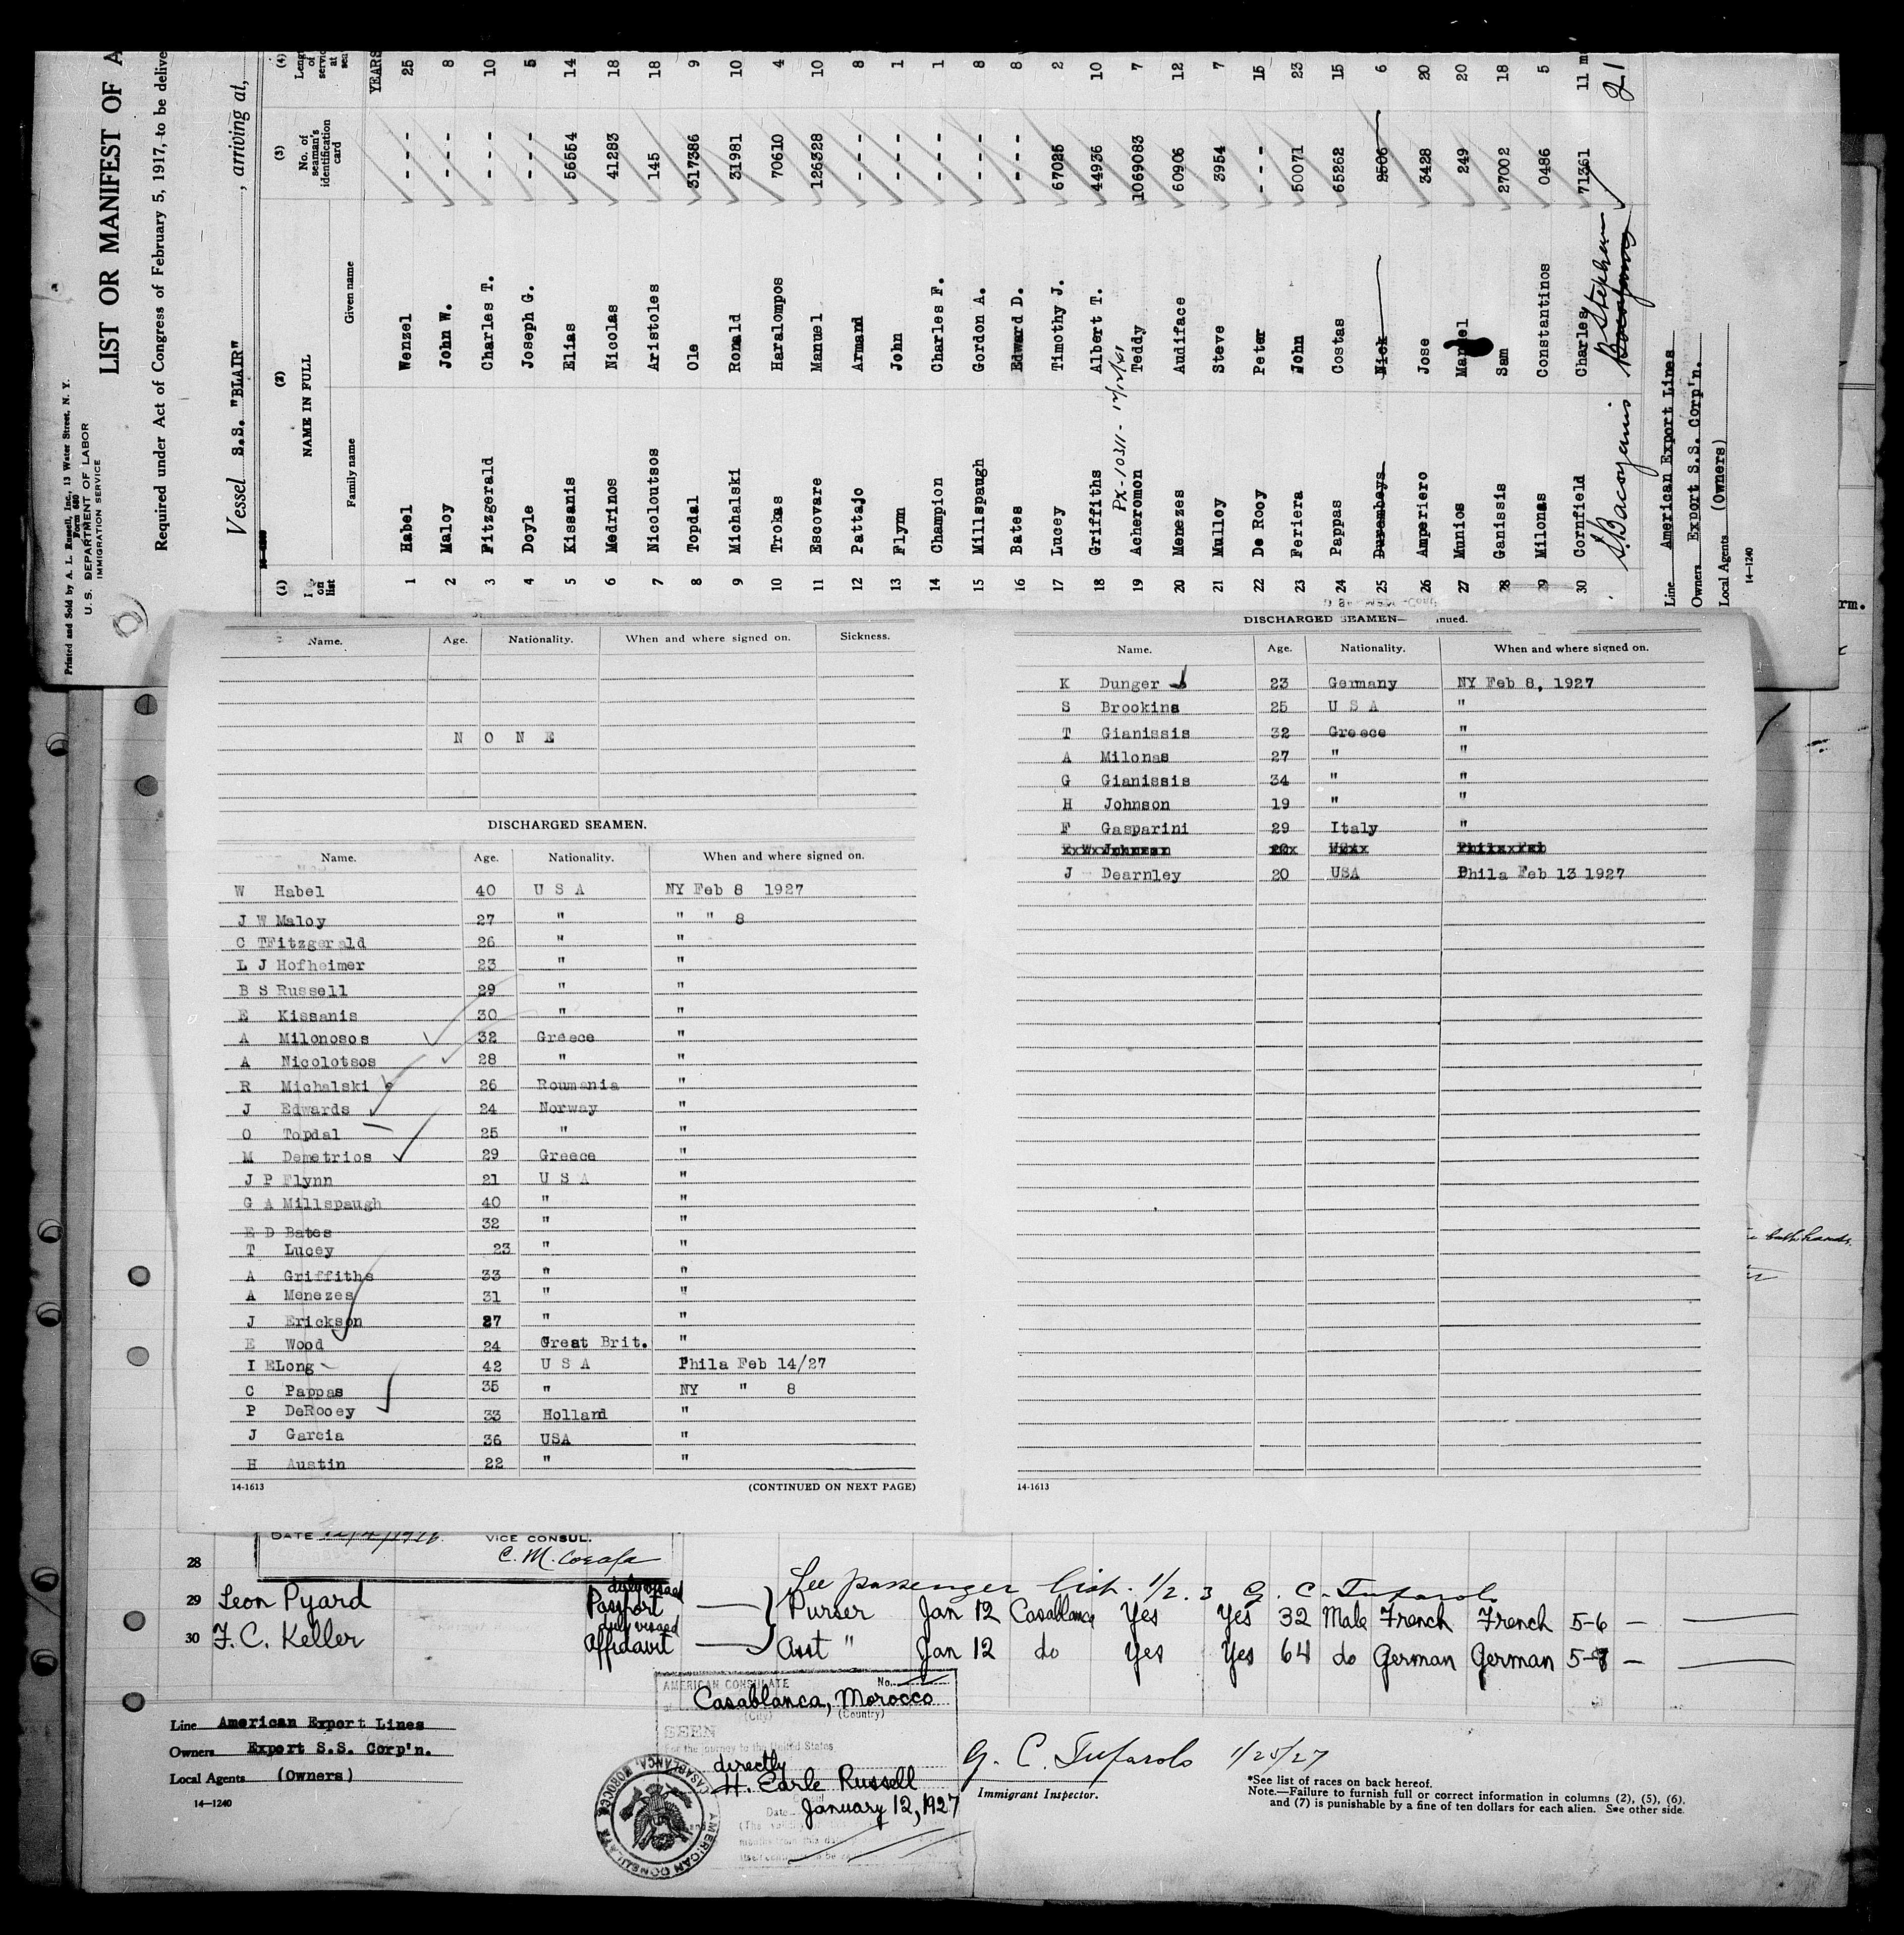 Printed and Sold by A. L. Russell, Inc., 13 Water Street, N. Y.
Form 680
U. S. DEPARTMENT OF LABOR
IMMIGRATION SERVICE
LIST OR MANIFEST OF A
Required under Act of Congress of February 5, 1917, to be delive
Vessel S.S. "BLAIR", arriving at,
(1) (2) (3) (4)
No. on list NAME IN FULL No. of seaman's identification card
Family name Given name YEARS
1 Habel Wenzel - - - 25
2 Maloy John W. - - - 8
3 Fitzgerald Charles T. - - - 10
4 Doyle Joseph G. - - - 5
5 Kissanis Elias 56554 14
6 Medrinos Nicolas 41283 18
7 Nicoloutsos Aristoles 145 18
8 Topdal Ole 317386 9
9 Michalski Ronald 31981 10
10 Trokas Haralompos 70610 4
11 Escovare Manuel 126328 10
12 Pattajo Armand - - - 8
13 Flynn John - - - 1
14 Champion Charles F. - - - 1
15 Millspaugh Gordon A. - - - 8
16 Bates Edward D. - - - 8
17 Lucey Timothy J. 67025 2
18 Griffiths Albert T. 44936 10
PX-10311-
19 Acheromon Teddy 1069083 7
20 Menezes Audiface 60906 12
21 Mulloy Steve 3954 7
22 De Rooy Peter - - - 15
23 Feriera John 50071 23
24 Pappas Costas 65262 15
25 Nick 2506 6
26 Amperiero Jose 3428 20
27 Munios Manuel 249 20
28 Ganissis Sam 27002 18
29 Milonas Constantinos 0486 5
30 Cornfield Charles 71361 11 m
S. Bacoyanis Stephen 21
Line American Export Lines
Owners Export S.S. Corp'n.
Local Agents (Owners)
14-1240
Name. Age. Nationality. When and where signed on. Sickness.
N O N E
DISCHARGED SEAMEN.
Name. Age. Nationality. When and where signed on.
W Habel 40 U S A NY Feb 8 1927
J W Maloy 27 " " " 8
C TFitzgerald 26 " "
L J Hofheimer 23 " "
B S Russell 29 " "
E Kissanis 30 " "
A Milonosos 32 Greece "
A Nicolotsos 28 " "
R Michalski 26 Roumania "
J Edwards 24 Norway "
O Topdal 25 " "
M Demetrios 29 Greece "
J P Flynn 21 U S A "
G A Millspaugh 40 " "
E D Bates 32 " "
T Lucey 23 " "
A Griffiths 33 " "
A Menezes 31 " "
J Erickson 27 " "
E Wood 24 Great Brit. "
I ELong 42 U S A Phila Feb 14/27
C Pappas 35 " NY " 8
P DeRooey 33 Holland "
J Garcia 36 USA "
H Austin 22 " "
14-1613 (CONTINUED ON NEXT PAGE)
DISCHARGED SEAMEN— inued.
Name. Age. Nationality. When and where signed on.
K Dunger 23 Germany NY Feb 8, 1927
S Brookins 25 U S A "
T Gianissis 32 Greece "
A Milonas 27 " "
G Gianissis 34 " "
H Johnson 19 " "
F Gasparini 29 Italy "
J Dearnley 20 USA Phila Feb 13 1927
14-1613
both hands.
DATE VICE CONSUL.
28
See passenger list. 1/2.3 G. C. Tufarolo
29 Leon Pyard duly visaed Passport — Purser Jan 12 Casablanca Yes Yes 32 Male French French 5-6 —
30 F. C. Keller duly visaed Affidavit — Asst " Jan 12 do Yes Yes 64 do German German —
Line American Export Lines
Owners Export S.S. Corp'n.
Local Agents (Owners)
14—1240
AMERICAN CONSULATE No.
at Casablanca, Morocco
(City) (Country)
SEEN
For the journey to the United States
directly
H. Earle Russell
Consul
Date January 12, 1927
AMERICAN CONSULATE CASABLANCA, MOROCCO
G. C. Tufarolo 1/25/27
Immigrant Inspector.
*See list of races on back hereof.
Note.—Failure to furnish full or correct information in columns (2), (5), (6),
and (7) is punishable by a fine of ten dollars for each alien. See other side.